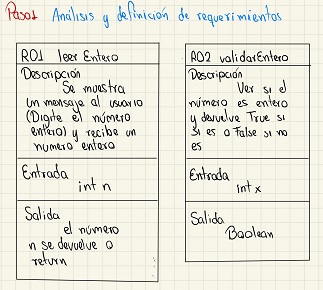 Paso1 Análisis y definición de requerimientos
R01 leerEntero
Descripción
Se muestra
un mensaje al usuario
(Digite el número
entero) y recibe un
numero entero
Entrada
int n
Salida
el número
n se devuelve o
return
R02 validarEntero
Descripción
Ver si el
número es entero
y devuelve True si
si es o False si no
es
Entrada
int x
Salida
Boolean